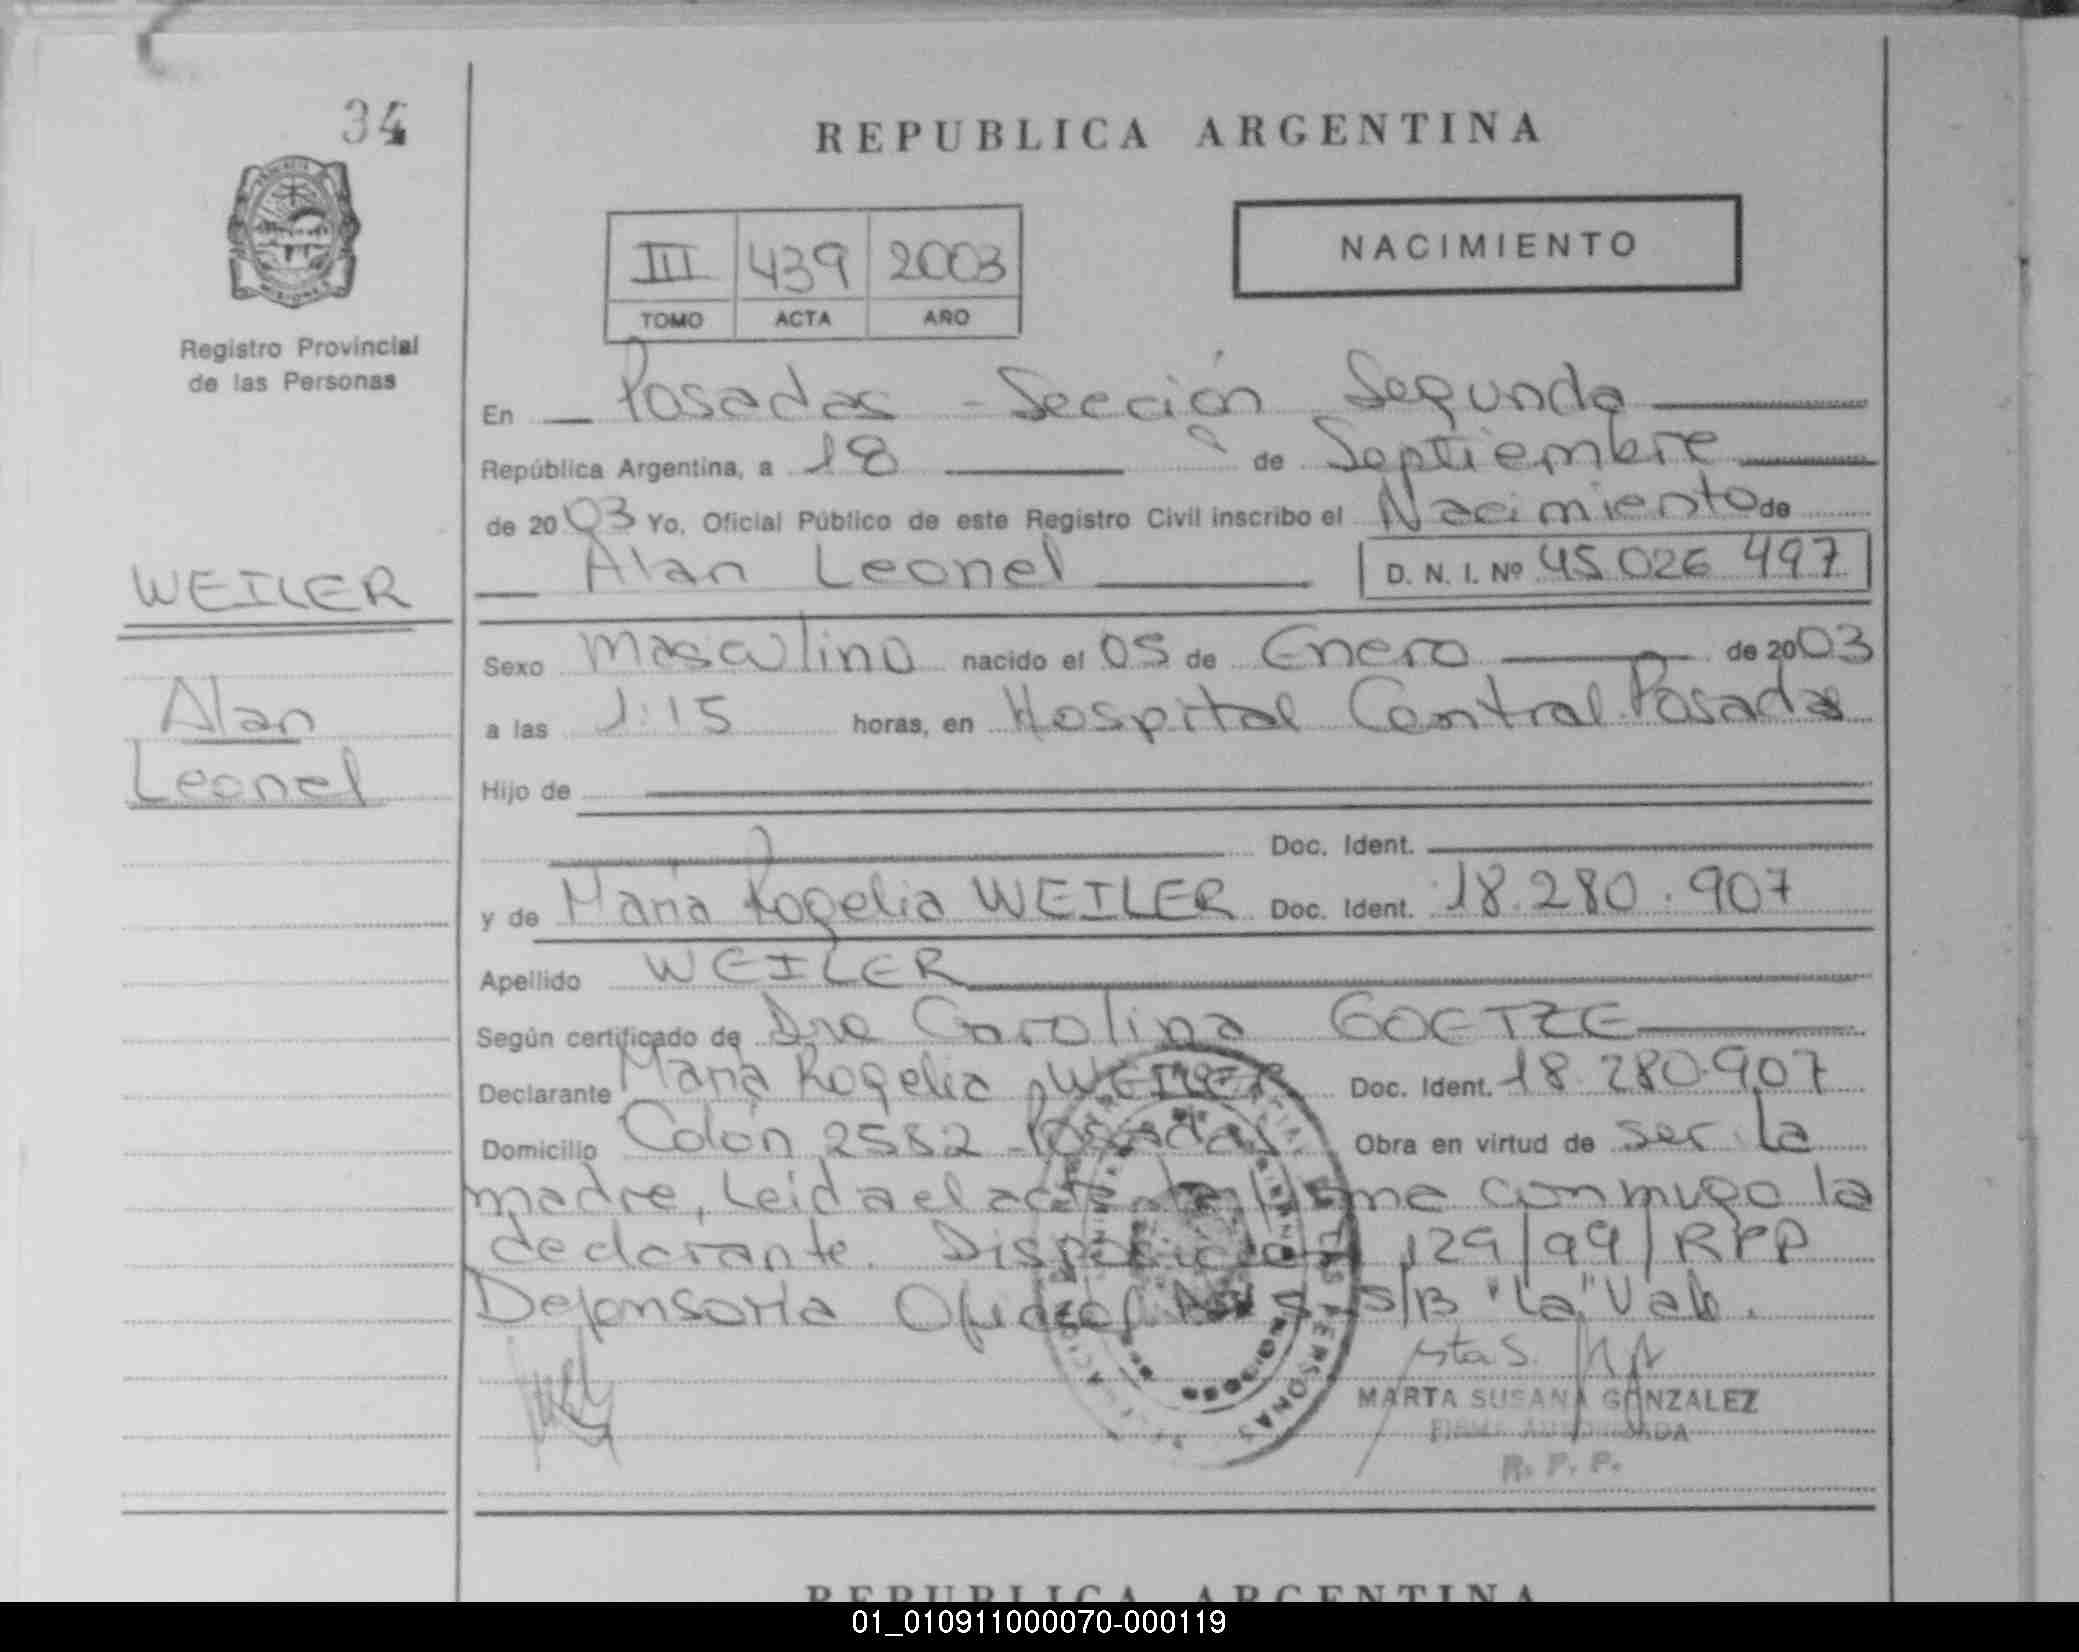 34
REPUBLICA ARGENTINA
NACIMIENTO
III 439 2003
TOMO ACTA AÑO
MISIONES
Registro Provincial
de las Personas
En Posadas - Sección Segunda
República Argentina, a 18 de Septiembre
de 2003 Yo, Oficial Público de este Registro Civil inscribo el Nacimiento de
Alan Leonel D. N. I. Nº 45.026 497
WEILER
Alan
Leonel
Sexo Masculino nacido el 05 de Enero de 2003
a las 1:15 horas, en Hospital Central Posadas
Hijo de
Doc. Ident.
y de Maria Rogelia WEILER Doc. Ident. 18.280.907
Apellido WEILER
Según certificado de Dra Carolina GOETZE
Declarante Maria Rogelia WEILER Doc. Ident. 18.280.907
Domicilio Colón 2582 - Posadas Obra en virtud de ser la
madre, Leida el acta la firma conmigo la
declarante. Disposición 129/99/RPP
Defensoria Oficial S/B "la" Vale.
MARTA SUSANA GONZALEZ
FIRMA AUTORIZADA
R. P. P.
REPUBLICA ARGENTINA
01_010911000070-000119